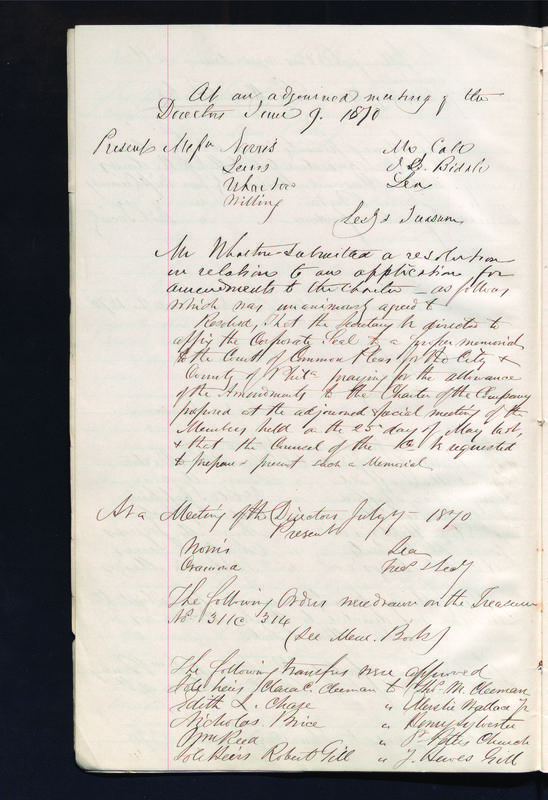 At an adjourned meeting of the
Directors June 9. 1870
Present Messrs Norris Mc Call
Lewis J. G. Biddle
Wharton Lea
Willing
Secy & Treasurer
Mr Wharton submitted a resolution
in relation to our application for
amendments to the Charter – as follows
which was unanimously agreed to
Resolved, That the Secretary be directed to
affix the Corporate Seal to a proper memorial
to the Court of Common Pleas for the City &
County of Phila praying for the allowance
of the Amendments to the Charter of the Company
proposed at the adjourned special meeting of the
Members held on the 25 day of May last,
& that the Counsel of the Co be requested
to prepare & present such a Memorial
At a Meeting of the Directors July 7 – 1870
Present
Norris Lea
Treas & Secy
The following Orders were drawn on the Treasurer
No. 311 @ 314
(See Mem. Book)
The following transfers were approved
Clara C. Cleeman to Thos. M. Cleeman
Edith L. Chase " Wallace Jr
Nicholas Brice " Henry Sylvester
Wm Reed " St Peters Church
Sole Heirs Robert Gill " J. Hewes Gill